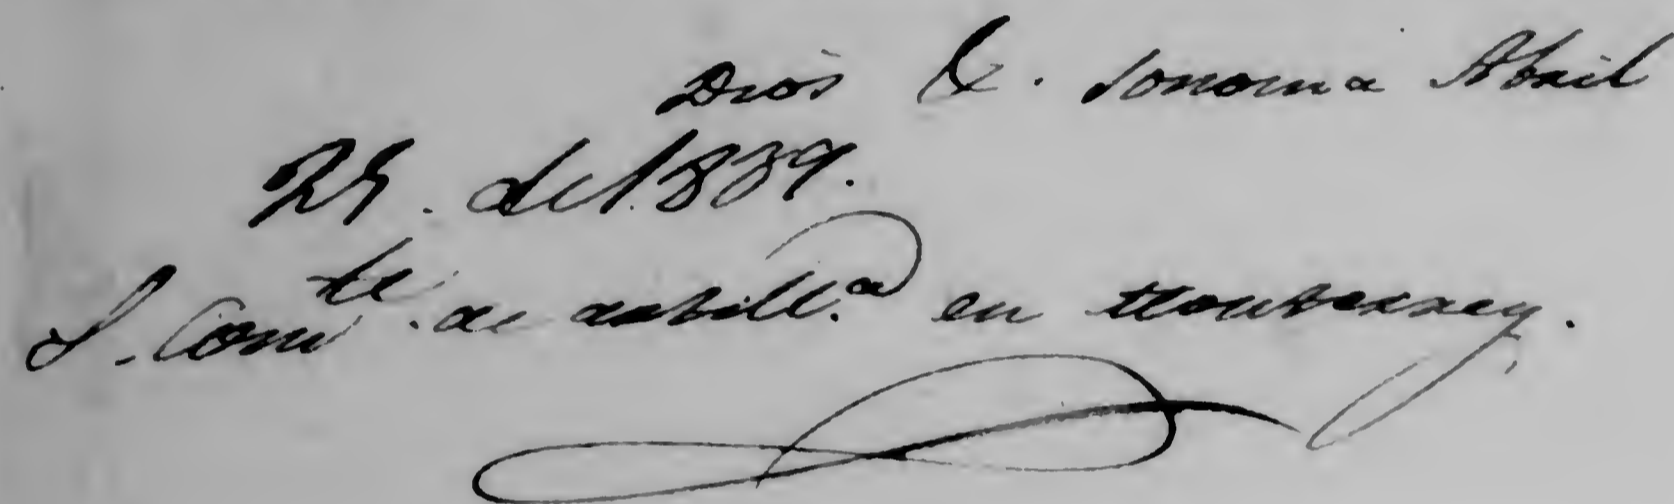 Dios &. Sonoma Abril
25. de 1839.
S. Comte. de artilla. en Monterrey.